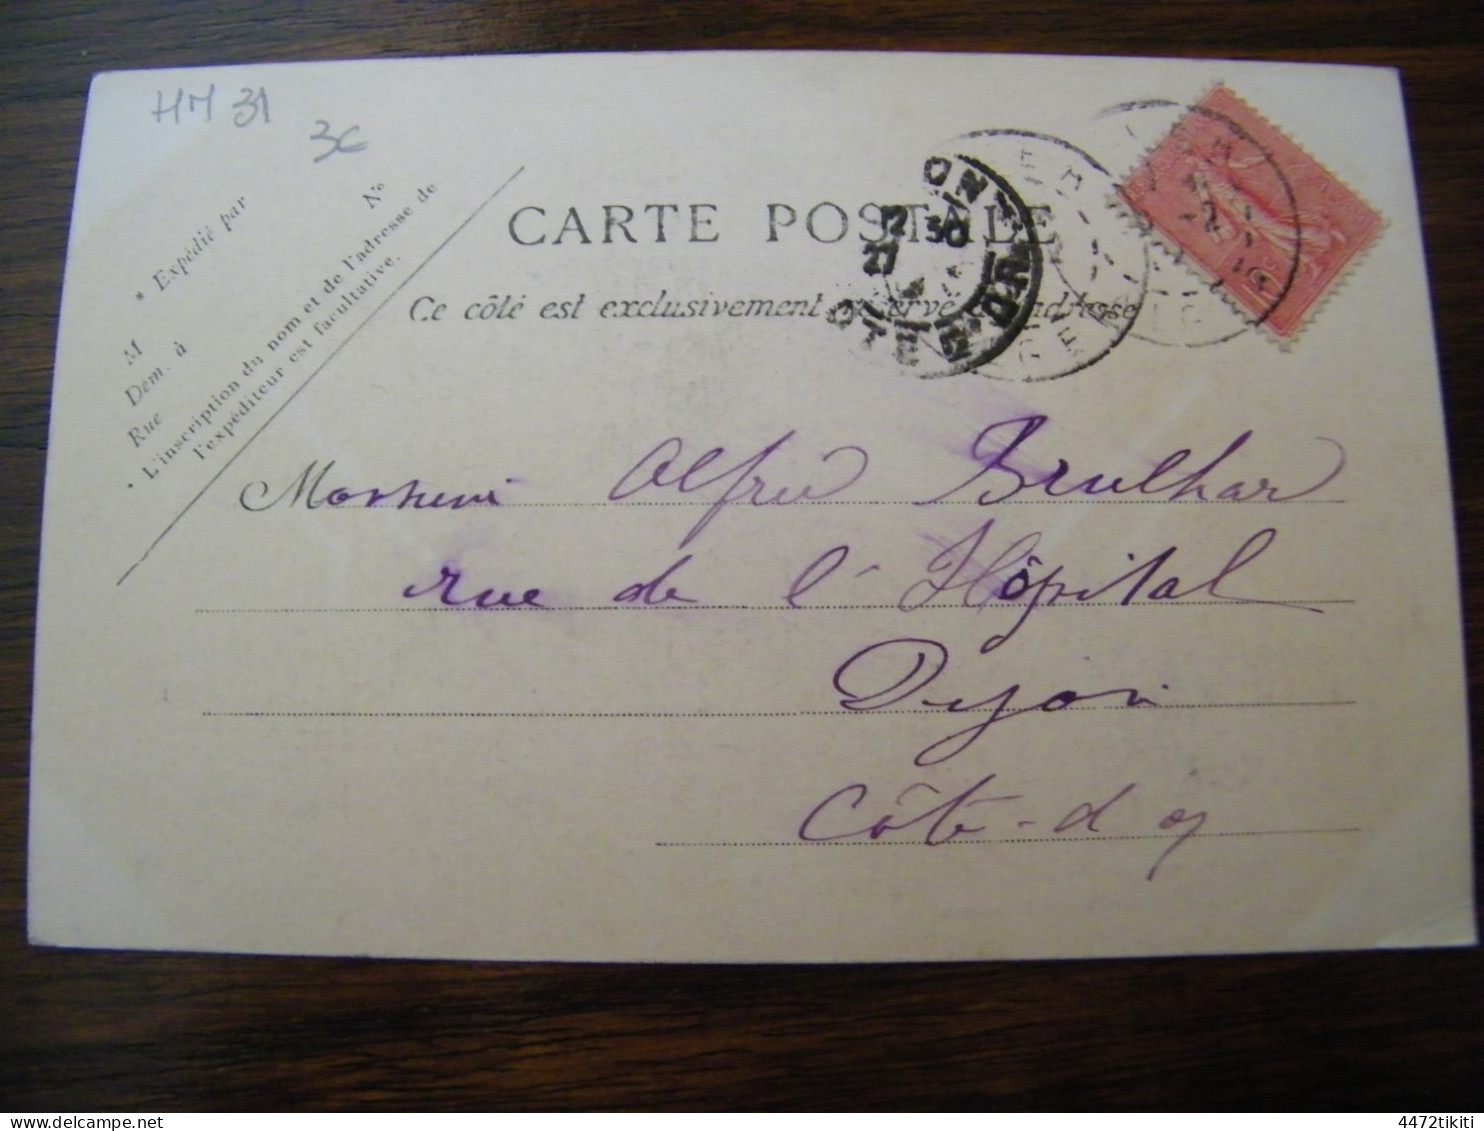 HM 31
3€
* Expédié par
M
Dem. à
Rue
N°
* L'inscription du nom et de l'adresse de
l'expéditeur est facultative.
CARTE POSTALE
Ce côté est exclusivement réservé à l'adresse
Monsieur Alfred Brulhard
rue de l'Hôpital
Dijon
Côte-d'or
4472tikiti